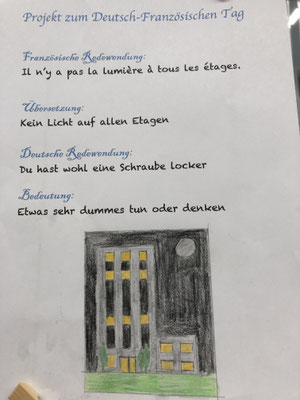 Projekt zum Deutsch-Französischen Tag
Französische Redewendung:
Il n'y a pas la lumière à tous les étages.
Übersetzung:
Kein Licht auf allen Etagen
Deutsche Redewendung:
Du hast wohl eine Schraube locker
Bedeutung:
Etwas sehr dummes tun oder denken